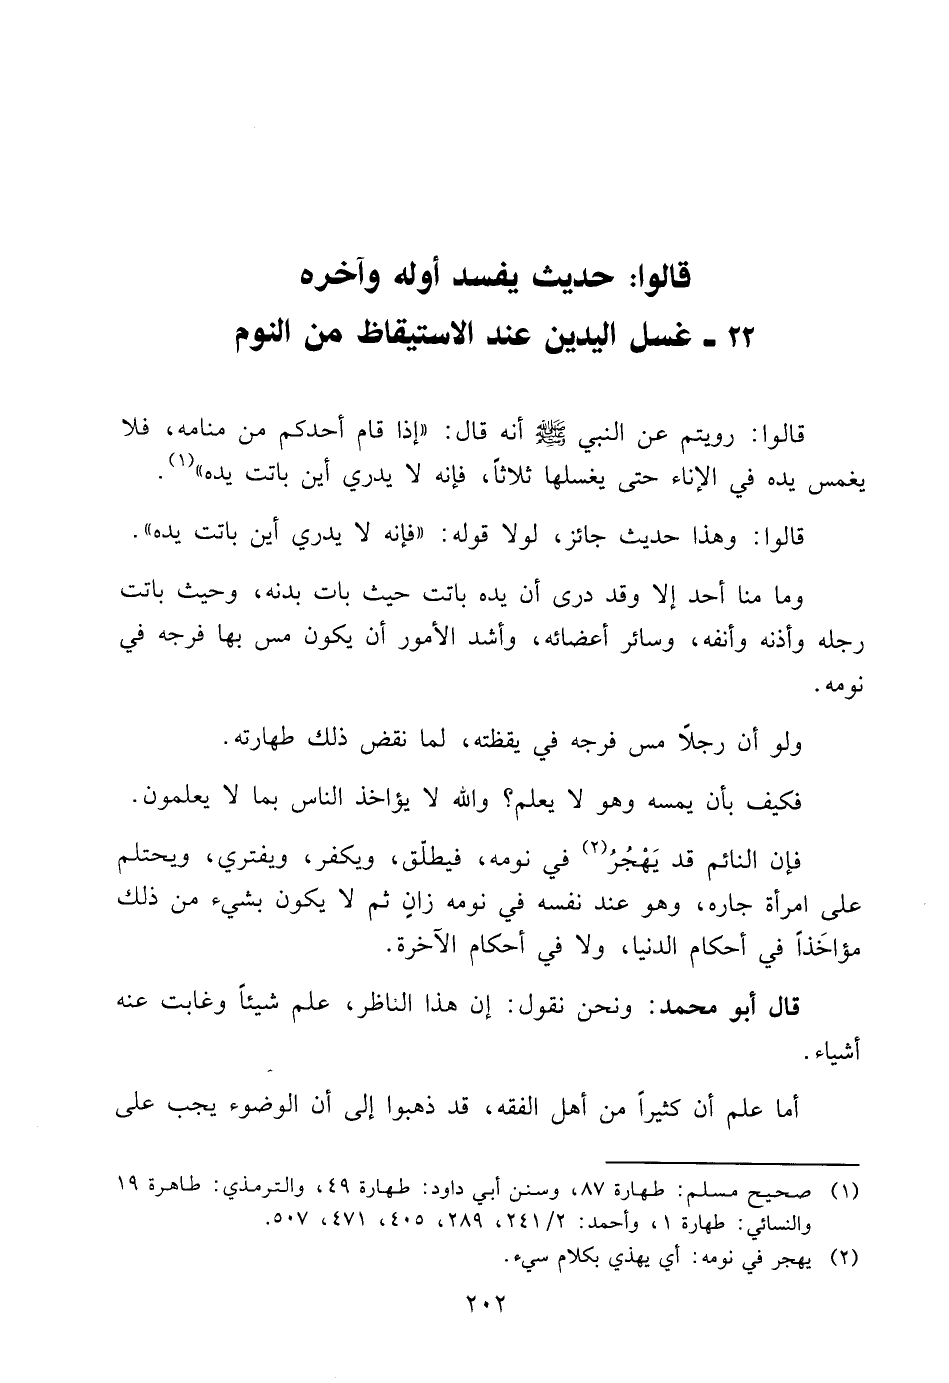 قالوا: حديث يفسد أوله وآخره
٢٢ ـ غسل اليدين عند الاستيقاظ من النوم
قالوا: رويتم عن النبي ﷺ أنه قال: «إذا قام أحدكم من منامه، فلا
يغمس يده في الإناء حتى يغسلها ثلاثاً، فإنه لا يدري أين باتت يده»(١).
قالوا: وهذا حديث جائز، لولا قوله: «فإنه لا يدري أين باتت يده».
وما منا أحد إلا وقد درى أن يده باتت حيث بات بدنه، وحيث باتت
رجله وأذنه وأنفه، وسائر أعضائه، وأشد الأمور أن يكون مس بها فرجه في
نومه.
ولو أن رجلاً مس فرجه في يقظته، لما نقض ذلك طهارته.
فكيف بأن يمسه وهو لا يعلم؟ والله لا يؤاخذ الناس بما لا يعلمون.
فإن النائم قد يَهْجُرُ(٢) في نومه، فيطلّق، ويكفر، ويفتري، ويحتلم
على امرأة جاره، وهو عند نفسه في نومه زانٍ ثم لا يكون بشيء من ذلك
مؤاخَذاً في أحكام الدنيا، ولا في أحكام الآخرة.
قال أبو محمد: ونحن نقول: إن هذا الناظر، علم شيئاً وغابت عنه
أشياء.
أما علم أن كثيراً من أهل الفقه، قد ذهبوا إلى أن الوضوء يجب على
(١) صحيح مسلم: طهارة ٨٧، وسنن أبي داود: طهارة ٤٩، والترمذي: طاهرة ١٩
والنسائي: طهارة ١، وأحمد: ٢٤١/٢، ٢٨٩، ٤٠٥، ٤٧١، ٥٠٧.
(٢) يهجر في نومه: أي يهذي بكلام سيء.
٢٠٢